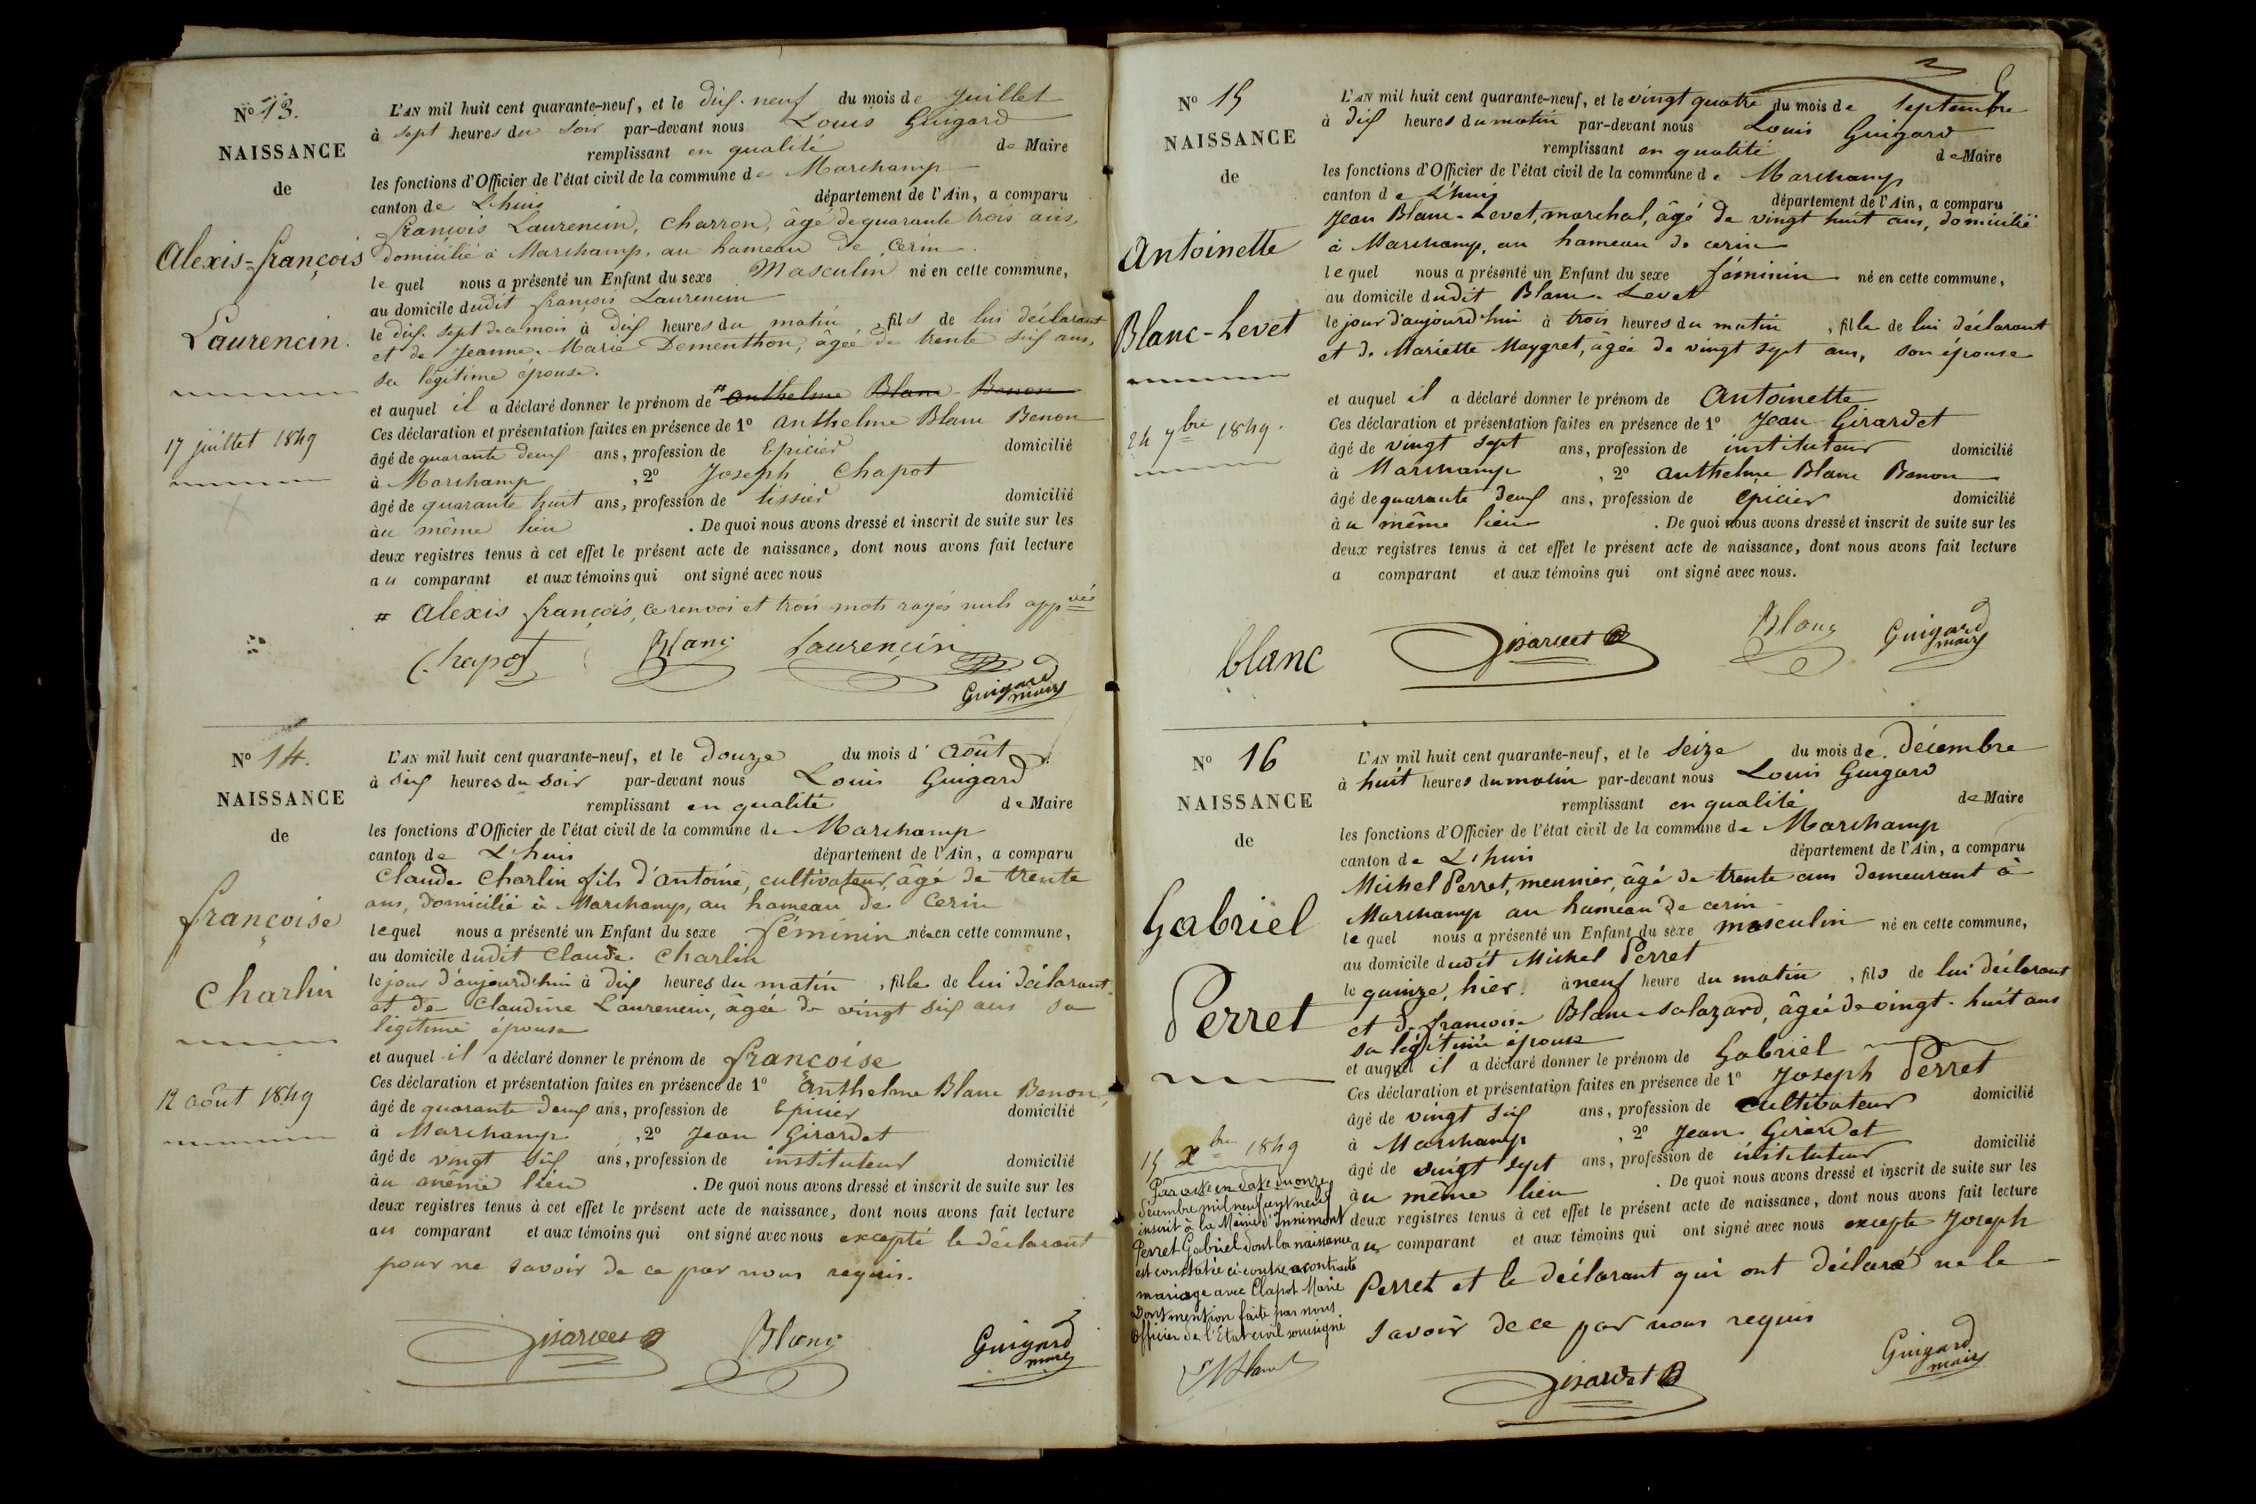 N° 13.
NAISSANCE
de
Alexis-françois
Laurencin.
17 juillet 1849
L'AN mil huit cent quarante-neuf, et le dix-neuf du mois de Juillet
à sept heures du soir par-devant nous Louis Guigard
remplissant en qualité de Maire
les fonctions d'Officier de l'état civil de la commune de Marchamp
canton de L'huis département de l'Ain, a comparu
françois Laurencin, charron, âgé de quarante trois ans,
domicilié à Marchamp, au hameau de Cerin
lequel nous a présenté un Enfant du sexe Masculin né en cette commune,
au domicile dudit françois Laurencin
le dix-sept de ce mois à dix heures du matin, fils de lui déclarant
et de Jeanne-Marie Dementhon, âgée de trente six ans,
sa légitime épouse.
et auquel il a déclaré donner le prénom de # anthelme Blanc-Benon
Ces déclaration et présentation faites en présence de 1° anthelme Blanc Benon
âgé de quarante deux ans, profession de Epicier domicilié
à Marchamp, 2° Joseph Chapot
âgé de quarante huit ans, profession de tissier domicilié
au même lieu . De quoi nous avons dressé et inscrit de suite sur les
deux registres tenus à cet effet le présent acte de naissance, dont nous avons fait lecture
au comparant et aux témoins qui ont signé avec nous
# Alexis françois, ce renvoi et trois mots rayés nuls appvés
Chapot Blanc Laurencin
Guigard
maire
N° 14.
NAISSANCE
de
françoise
Charlin
12 août 1849
L'AN mil huit cent quarante-neuf, et le douze du mois d'août
à six heures du soir par-devant nous Louis Guigard
remplissant en qualité de Maire
les fonctions d'Officier de l'état civil de la commune de Marchamp
canton de L'huis département de l'Ain, a comparu
Claude Charlin fils d'antoine, cultivateur, âgé de trente
ans, domicilié à Marchamp, au hameau de Cerin
lequel nous a présenté un Enfant du sexe féminin née en cette commune,
au domicile dudit Claude Charlin
le jour d'aujourd'hui à dix heures du matin, fille de lui déclarant
et de Claudine Laurencin, âgée de vingt six ans sa
légitime épouse
et auquel il a déclaré donner le prénom de françoise
Ces déclaration et présentation faites en présence de 1° anthelme Blanc Benon,
âgé de quarante deux ans, profession de Epicier domicilié
à Marchamp, 2° Jean Girardet
âgé de vingt six ans, profession de instituteur domicilié
au même lieu . De quoi nous avons dressé et inscrit de suite sur les
deux registres tenus à cet effet le présent acte de naissance, dont nous avons fait lecture
au comparant et aux témoins qui ont signé avec nous excepté le déclarant
pour ne savoir de ce par nous requis.
Girardet Blanc Guigard
maire
N° 15
NAISSANCE
de
Antoinette
Blanc-Levet
24 7bre 1849.
L'AN mil huit cent quarante-neuf, et le vingt quatre du mois de Septembre
à dix heures du matin par-devant nous Louis Guigard
remplissant en qualité de Maire
les fonctions d'Officier de l'état civil de la commune de Marchamp
canton de L'huis département de l'Ain, a comparu
Jean Blanc-Levet, marchal, âgé de vingt huit ans, domicilié
à Marchamp, au hameau de cerin
lequel nous a présenté un Enfant du sexe féminin né en cette commune,
au domicile dudit Blanc-Levet
le jour d'aujourd'hui à trois heures du matin, fille de lui déclarant
et de Mariette Maygret, âgée de vingt sept ans, son épouse
et auquel il a déclaré donner le prénom de Antoinette
Ces déclaration et présentation faites en présence de 1° Jean Girardet
âgé de vingt sept ans, profession de instituteur domicilié
à Marchamp, 2° anthelme Blanc Benon
âgé de quarante deux ans, profession de epicier domicilié
au même lieu . De quoi nous avons dressé et inscrit de suite sur les
deux registres tenus à cet effet le présent acte de naissance, dont nous avons fait lecture
a comparant et aux témoins qui ont signé avec nous.
blanc Girardet Blanc Guigard
maire
N° 16
NAISSANCE
de
Gabriel
Perret
15 Xbre 1849
Par acte en date du onze
décembre mil neuf cent neuf
inscrit à la Mairie d'Innimont
Perret Gabriel dont la naissance
est constatée ci-contre a contracté
mariage avec Clapot Marie
Dont mention faite par nous
Officier de l'Etat civil soussigné
L'AN mil huit cent quarante-neuf, et le seize du mois de décembre
à huit heures du matin par-devant nous Louis Guigard
remplissant en qualité de Maire
les fonctions d'Officier de l'état civil de la commune de Marchamp
canton de L'huis département de l'Ain, a comparu
Michel Perret, meunier, âgé de trente ans demeurant à
Marchamp au hameau de cerin
lequel nous a présenté un Enfant du sexe masculin né en cette commune,
au domicile dudit Michel Perret
le quinze, hier. à neuf heure du matin, fils de lui déclarant
et de francoise Blanc-salazard, âgée de vingt-huit ans
sa légitime épouse
et auquel il a déclaré donner le prénom de Gabriel
Ces déclaration et présentation faites en présence de 1° Joseph Perret
âgé de vingt six ans, profession de cultivateur domicilié
à Marchamp, 2° Jean Girardet
âgé de vingt sept ans, profession de instituteur domicilié
au même lieu . De quoi nous avons dressé et inscrit de suite sur les
deux registres tenus à cet effet le présent acte de naissance, dont nous avons fait lecture
au comparant et aux témoins qui ont signé avec nous excepte Joseph
Perret et le déclarant qui ont déclaré ne le
savoir de ce par nous requis
Girardet Guigard
maire